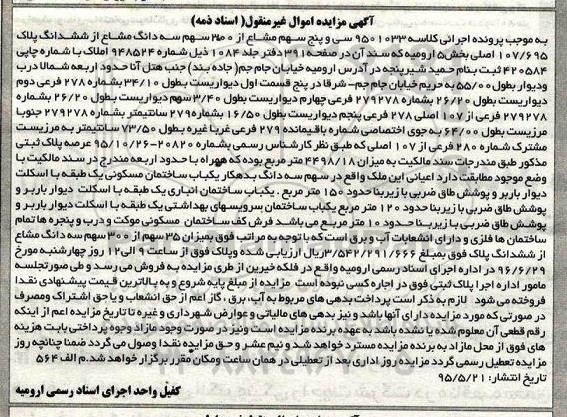 آگهی مزایده اموال غیرمنقول( اسناد ذمه)
به موجب پرونده اجرائی کلاسه ۹۵۰۱۰۳۳ سی و پنج سهم مشاع از ۳۰۰ سهم سه دانگ مشاع از ششدانگ پلاک
۱۰۷/۶۹۵ اصلی بخش۵ ارومیه که سند آن در صفحه ۳۹۱ دفتر جلد ۱۰۸۴ ذیل شماره ۹۴۸۵۲۴ املاک با شماره چاپی
۴۲۰۵۸۴ ثبت بنام حمید شیرپنجه در آدرس ارومیه خیابان جام جم( جاده بند) جنب هتل آنا حدود اربعه شمالا درب
ودیوار بطول ۵۵/۰۰ به حریم خیابان جام جم- شرقا در پنج قسمت اول دیواریست بطول ۳۴/۱۰ بشماره ۲۷۸ فرعی دوم
دیواریست بطول ۲۶/۲۰ بشماره ۲۷۹۲۷۸ فرعی چهارم دیواریست بطول ۳/۴۰ سوم دیواریست بطول ۲۶/۲۰ بشماره
۲۷۹۲۷۸ فرعی از ۱۰۷ اصلی ۲۷۸ فرعی پنجم دیواریست بطول ۱۶/۵۰ بشماره ۲۷۹ سانتیمتر بشماره ۲۷۹۲۷۸ جنوبا
مرزیست بطول ۶۴/۰۰ به جوی اختصاصی شماره باقیمانده ۲۷۹ فرعی غربا غیره بطول ۷۳/۵۰ سانتیمتر به مرزیست
مشترک شماره ۲۸۰ فرعی از ۱۰۷ اصلی که طبق نظر کارشناس رسمی بشماره ۲۰۸۲۰-۹۵/۱۰/۲۶ عرصه پلاک ثبتی
مذکور طبق مندرجات سند مالکیت به میزان ۴۴۹۸/۱۸ متر مربع بوده که همراه با حدود اربعه مندرج در سند مالکیت با
وضع موجود مطابقت دارد اعیانی این ملک واقع در سهم سه دانگ بدهکار یکباب ساختمان مسکونی یک طبقه با اسکلت
دیوار باربر و پوشش طاق ضربی با زیربنا حدود ۱۵۰ متر مربع . یکباب ساختمان انباری یک طبقه با اسکلت دیوار باربر و
پوشش طاق ضربی با زیربنا حدود ۱۲۰ متر مربع یکباب ساختمان سرویسهای بهداشتی یک طبقه با اسکلت دیوار باربر و
پوشش طاق ضربی با زیربنا حدود ۱۰ متر مربع می باشد فرش کف ساختمان مسکونی موکت و درب و پنجره ها تمام
ساختمان ها فلزی و دارای انشعابات آب و برق است که با توجه به مراتب فوق بمیزان ۳۵ سهم از ۳۰۰ سهم سه دانگ مشاع
از ششدانگ پلاک فوق بمبلغ ۳/۵۴۲/۲۹۱/۶۶۶ریال ارزیابی شده وپلاک فوق از ساعت ۹ الی۱۲ روز چهارشنبه مورخ
۹۶/۶/۲۹ در اداره اجرای اسناد رسمی ارومیه واقع در فلکه خیرین از طری مزایده به فروش می رسد و طی صورتجلسه
مامور اداره اجرا پلاک ثبتی فوق در اجاره کسی نبوده است مزایده از مبلغ پایه شروع و به بالاترین قیمت پیشنهادی نقدا
فروخته می شود لازم به ذکر است پرداخت بدهی های مربوط به آب، برق ، گاز اعم از حق انشعاب و یا حق اشتراک ومصرف
در صورتی که مورد مزایده دارای آنها باشد و نیز بدهی های مالیاتی و عوارض شهرداری و غیره تا تاریخ مزایده اعم از اینکه
رقم قطعی آن معلوم شده یا نشده باشد به عهده برنده مزایده است ونیز در صورت وجود مازاد وجوه پرداختی بابت هزینه
های فوق از محل مازاد به برنده مزایده مسترد خواهد شد و نیم عشر و حق مزایده نقدا وصول می گردد ضمنا چنانچه روز
مزایده تعطیل رسمی گردد مزایده روز اداری بعد از تعطیلی در همان ساعت ومکان مقرر برگزار خواهد شد.م الف ۵۶۴
تاریخ انتشار: ۹۵/۵/۲۱
کفیل واحد اجرای اسناد رسمی ارومیه